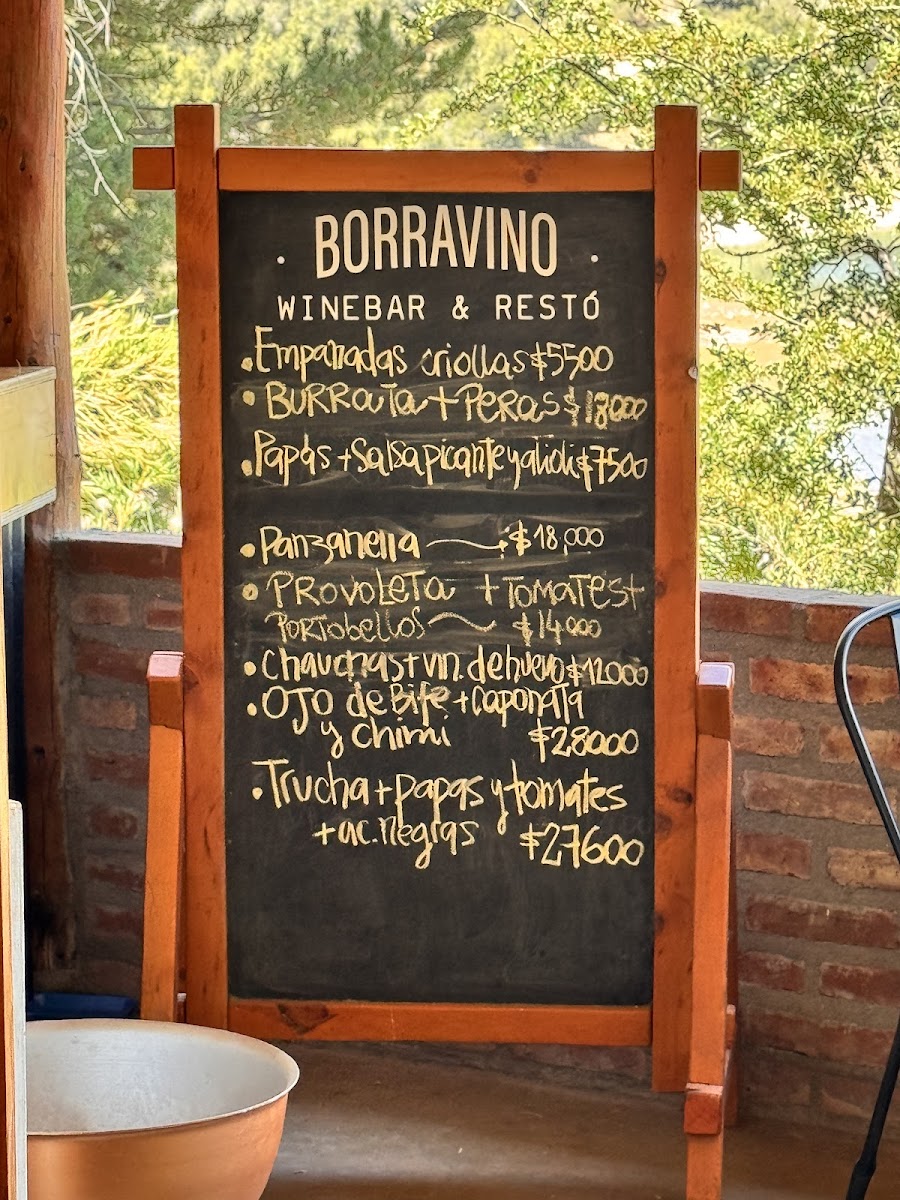 · BORRAVINO ·
WINEBAR & RESTÓ
• Empanadas criollas $5500
• BURRATA + PERAS $18000
• Papas + Salsa picante y alioli $7500
• Panzanella $18,000
• PROVOLETA + TOMATES +
PORTOBELLOS $14000
• Chauchas + vin. de huevo $12000
• OJO de Bife + Caponata
y chimi $28000
• Trucha + papas y tomates
+ ac. negras $27600